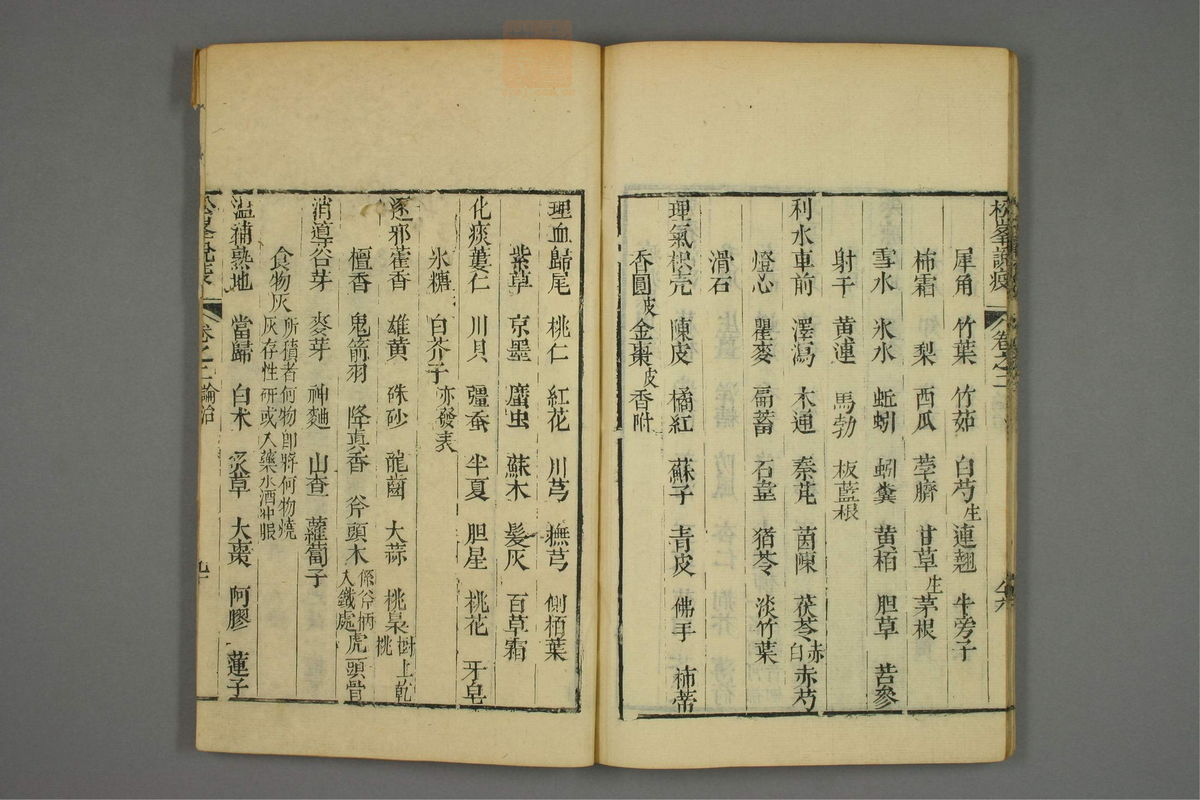 松峯說疫 卷之二
犀角 竹葉 竹茹 白芍生 連翹 牛旁子
柿霜 梨 西瓜 荸臍 甘草生 茅根
雪水 氷水 蚯蚓 蚓糞 黄栢 胆草 苦參
射干 黄連 馬勃 板藍根
利水車前 澤瀉 木通 秦艽 茵陳 茯苓赤白 赤芍
燈心 瞿麥 萹蓄 石韋 猪苓 淡竹葉
滑石
理氣枳壳 陳皮 橘紅 蘇子 青皮 佛手 柿蒂
香圓皮 金棗皮 香附
理血歸尾 桃仁 紅花 川芎 撫芎 側栢葉
紫草 京墨 䗪虫 蘇木 髮灰 百草霜
化痰蔞仁 川貝 殭蚕 半夏 胆星 桃花 牙皂
氷糖 白芥子亦發表
逐邪藿香 雄黄 硃砂 龍齒 大蒜 桃梟樹上乾桃
檀香 鬼箭羽 降真香 斧頭木係斧柄入鐵處 虎頭骨
消導谷芽 麥芽 神麯 山查 蘿蔔子
食物灰所積者何物即將何物燒灰存性研或入藥水酒冲服
溫補熟地 當歸 白朮 炙草 大棗 阿膠 蓮子
松峯說疫 卷之二論治